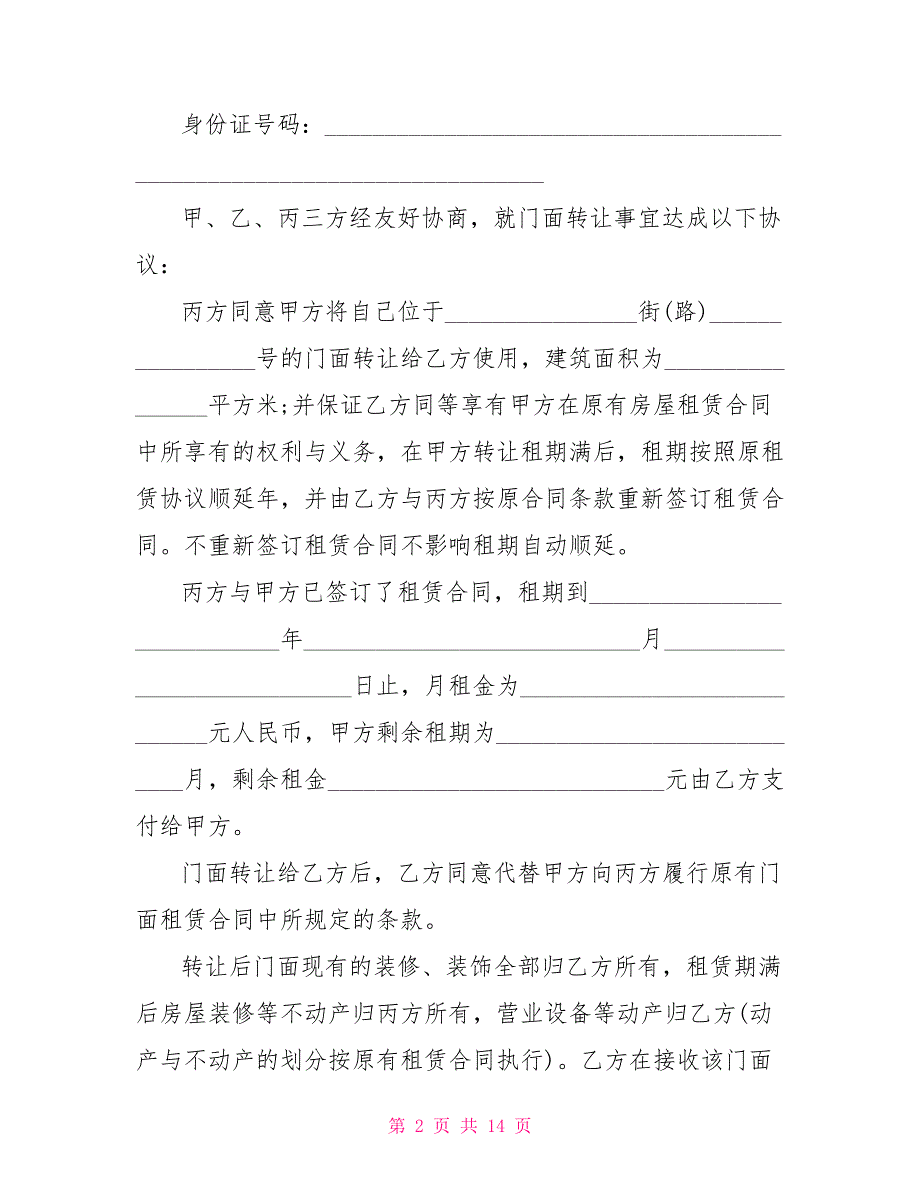 身份证号码：______________________________________
__________________________________
甲、乙、丙三方经友好协商，就门面转让事宜达成以下协
议：
丙方同意甲方将自己位于________________街(路)______
__________号的门面转让给乙方使用，建筑面积为__________
______平方米;并保证乙方同等享有甲方在原有房屋租赁合同
中所享有的权利与义务，在甲方转让租期满后，租期按照原租
赁协议顺延年，并由乙方与丙方按原合同条款重新签订租赁合
同。不重新签订租赁合同不影响租期自动顺延。
丙方与甲方已签订了租赁合同，租期到________________
____________年____________________________月__________
__________________日止，月租金为______________________
______元人民币，甲方剩余租期为________________________
____月，剩余租金____________________________元由乙方支
付给甲方。
门面转让给乙方后，乙方同意代替甲方向丙方履行原有门
面租赁合同中所规定的条款。
转让后门面现有的装修、装饰全部归乙方所有，租赁期满
后房屋装修等不动产归丙方所有，营业设备等动产归乙方(动
产与不动产的划分按原有租赁合同执行)。乙方在接收该门面
第 2 页 共 14 页